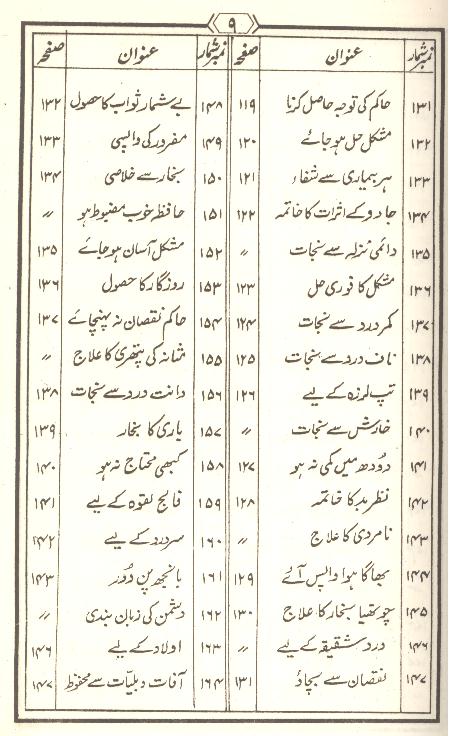 ۹
نمبر شمار عنوان صفحہ
۱۳۱ حاکم کی توجہ حاصل کرنا ۱۱۹
۱۳۲ مشکل حل ہو جائے ۱۲۰
۱۳۳ ہر بیماری سے شفاء ۱۲۱
۱۳۴ جادو کے اثرات کا خاتمہ ۱۲۲
۱۳۵ دائمی نزلہ سے نجات 〃
۱۳۶ مشکل کا فوری حل ۱۲۳
۱۳۷ کمر درد سے نجات ۱۲۴
۱۳۸ ناف درد سے نجات ۱۲۵
۱۳۹ تپ لرزہ کے لیے ۱۲۶
۱۴۰ خارش سے نجات 〃
۱۴۱ دودھ میں کمی نہ ہو ۱۲۷
۱۴۲ نظر بد کا خاتمہ ۱۲۸
۱۴۳ نامردی کا علاج 〃
۱۴۴ بھاگا ہوا واپس آئے ۱۲۹
۱۴۵ چوتھیا بخار کا علاج ۱۳۰
۱۴۶ درد شقیقہ کے لیے 〃
۱۴۷ نقصان سے بچاؤ ۱۳۱
نمبر شمار عنوان صفحہ
۱۴۸ بے شمار ثواب کا حصول ۱۳۲
۱۴۹ مفرور کی واپسی ۱۳۳
۱۵۰ بخار سے خلاصی ۱۳۴
۱۵۱ حافظہ خوب مضبوط ہو 〃
۱۵۲ مشکل آسان ہو جائے ۱۳۵
۱۵۳ روزگار کا حصول ۱۳۶
۱۵۴ حاکم نقصان نہ پہنچائے ۱۳۷
۱۵۵ مثانہ کی پتھری کا علاج 〃
۱۵۶ دانت درد سے نجات ۱۳۸
۱۵۷ باری کا بخار ۱۳۹
۱۵۸ کبھی محتاج نہ ہو ۱۴۰
۱۵۹ فالج لقوہ کے لیے ۱۴۱
۱۶۰ سر درد کے لیے ۱۴۲
۱۶۱ بانجھ پن دور ۱۴۳
۱۶۲ دشمن کی زبان بندی 〃
۱۶۳ اولاد کے لیے ۱۴۶
۱۶۴ آفات و بلیات سے محفوظ ۱۴۷